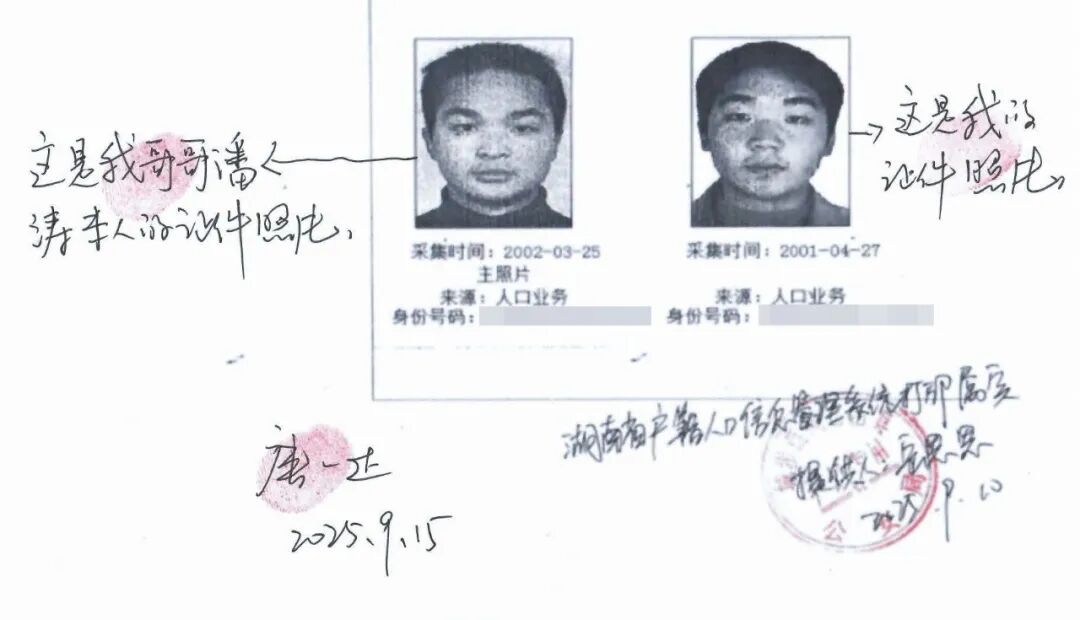 这是我哥哥潘
涛本人的证件照片、
这是我的
证件照片、
采集时间：2002-03-25
主照片
来源：人口业务
身份号码：
采集时间：2001-04-27
来源：人口业务
身份号码：
湖南省户籍人口信息管理系统打印属实
提供人：
2025.9.10
公
唐一
2025.9.15